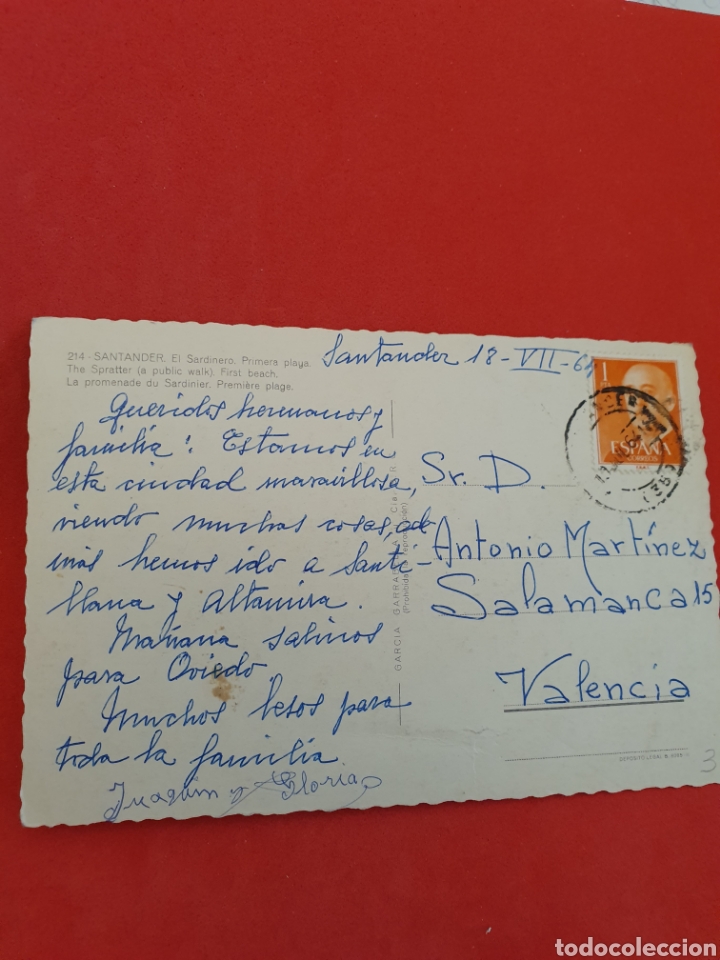 214 - SANTANDER. El Sardinero. Primera playa.
The Spratter (a public walk). First beach.
La promenade du Sardinier. Première plage.
Santander 18-VII-64
Queridos hermanos y
familia: Estamos en
esta ciudad maravillosa,
viendo muchas cosas, ade
más hemos ido a Santi-
llana y Altamira.
Mañana salimos
para Oviedo.
Muchos besos para
toda la familia.
Joaquin y Gloria
GARCIA GARRABELLA y Cia
(Prohibida la reproducción)
1
ESPAÑA
CORREOS
Sr. D.
Antonio Martínez
Salamanca 15
Valencia
DEPOSITO LEGAL B.
3
todocoleccion